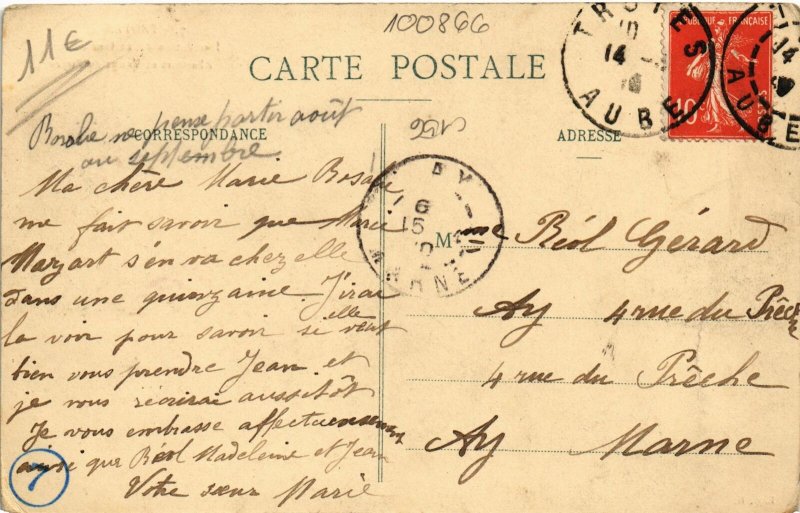 100866
11€
CARTE POSTALE
TROYES
10
14
AUBE
REPUBLIQUE FRANÇAISE
10
Rosalie ne pense partir août
ou septembre
CORRESPONDANCE
ADRESSE
C156
Ma chère Marie Rosalie
me fait savoir que Marie
Mozart s'en va chez elle
dans une quinzaine. J'irai
la voir pour savoir si elle veut
bien vous prendre Jean et
je vous récrirai aussitôt
Je vous embrasse affectueusement
ainsi que Réol Madeleine et Jean
Votre sœur Marie
7
AY
6
15
MARNE
Mme Réol Gérard
Ay 4 rue du Prêche
4 rue du Prêche
Ay Marne